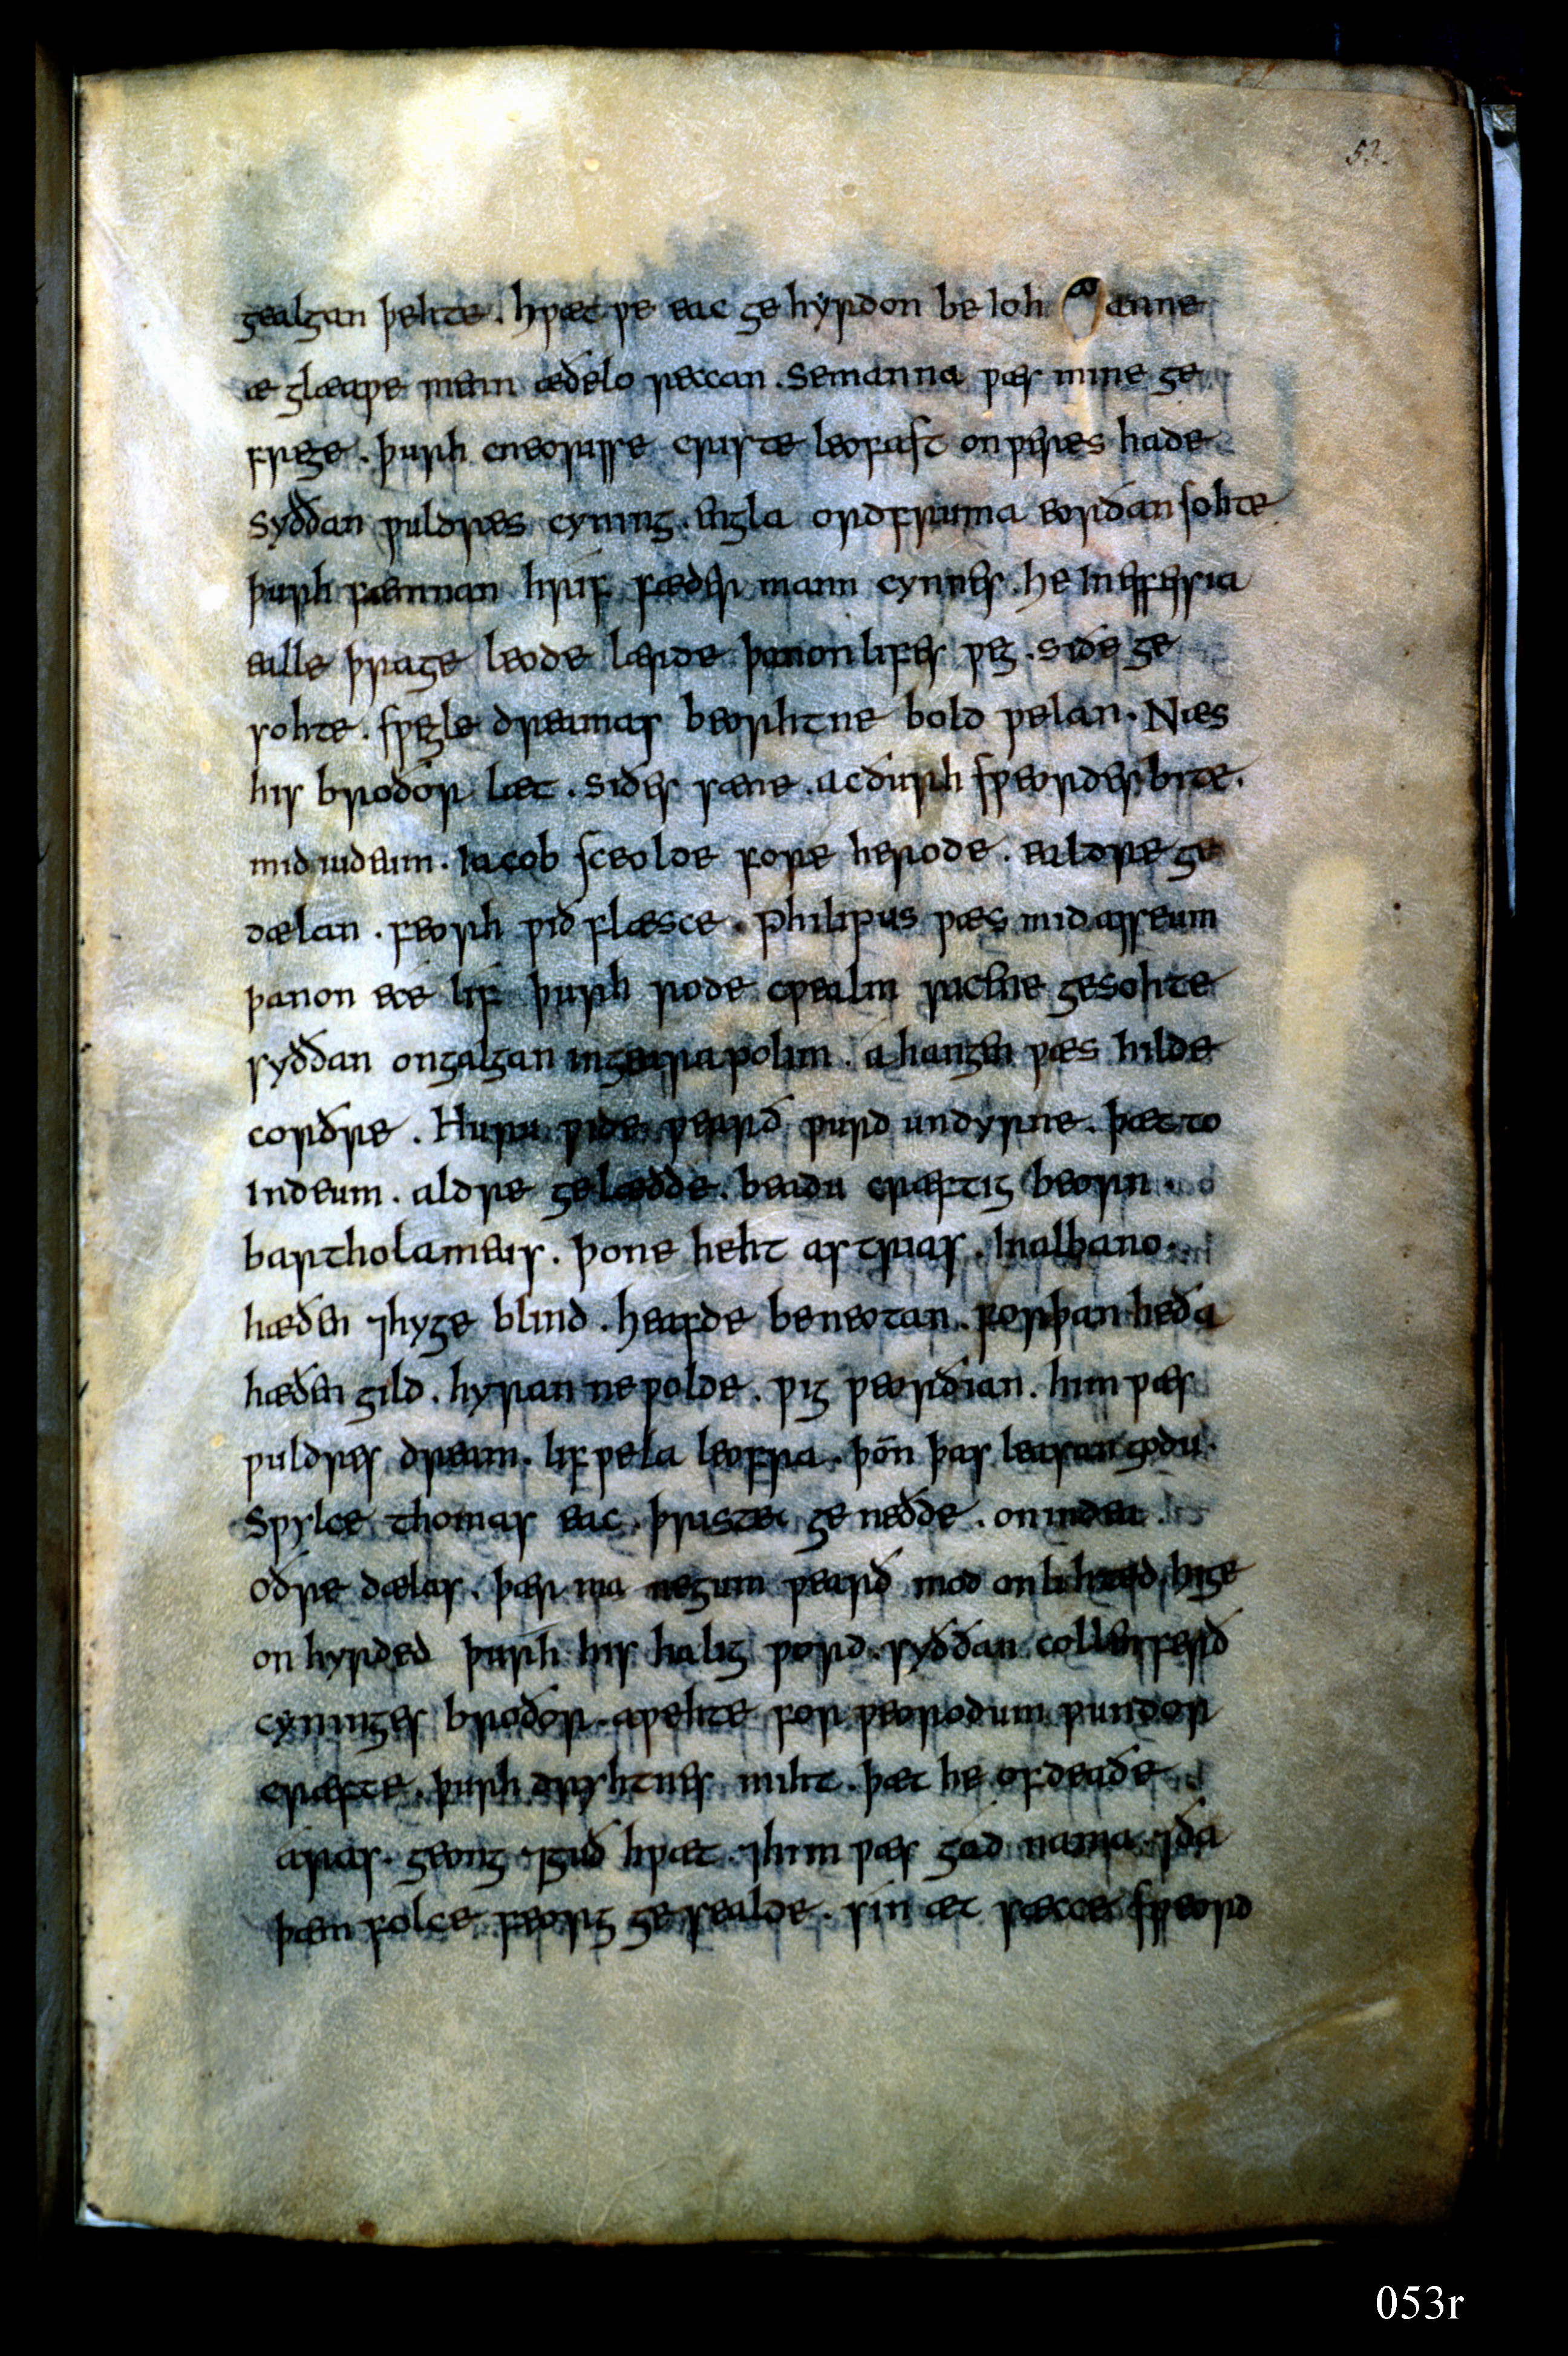 53.
gealgan þehte. hƿæt ƿe eac gehyrdon be ioh anne
æglæaƿe menn æðelo reccan. se manna ƿæs mine ge
fræge. þurh cneorisse criste leofast on ƿeres hade
syððan ƿuldres cyning. engla ordfruma eorðan sohte
þurh fæmnan hrif fæder manncynnes. he in effessia
ealle þrage leode lærde þanon lifes ƿeg. siðe ge
sohte. sƿegle dreamas beorhtne boldƿelan. Næs
his broðor læt. siðes sæne. ac ðurh sƿeordes bite.
mid iudeum. iacob sceolde fore herode. ealdre ge
dælan. feorh ƿið flæsce. philipus ƿæs mid asseum
þanon ece lif þurh rode cƿealm ricene gesohte
syððan on galgan in gearapolim. ahangen ƿæs hilde
corðre. Huru ƿide ƿearð ƿurd undyrne. þæt to
indeum. aldre gelædde. beaducræftig beorn.
bartholameus. þone heht astrias. in albano.
hæðen ⁊ hygeblind. heafde beneotan. forþan he ða
hæðengild. hyran ne ƿolde. ƿig ƿeorðian. him ƿæs
ƿuldres dream. lifƿela leofra. þoñ þas leasan godu.
Sƿylce thomas eac. þriste geneðde. on indea.
oðre dælas. þær manegum ƿearð mod onlihted hige
onhyrded þurh his halig ƿord. syððan collenferð
cyninges broðor. aƿehte for ƿeorodum ƿundor
cræfte. þurh dryhtnes miht. þæt he of deaðe.
aras. geong ⁊ guðhƿæt. ⁊ him ƿæs gad nama. ⁊ ða
þæm folce feorg gesealde. sin æt sæcce sƿeord
053r